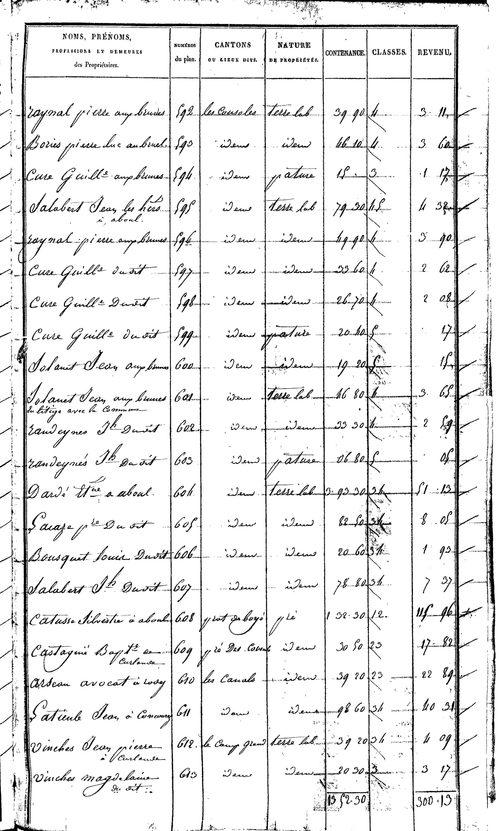 NOMS, PRÉNOMS, PROFESSIONS ET DEMEURES des Propriétaires. NUMÉROS du plan. CANTONS OU LIEUX DITS. NATURE DE PROPRIÉTÉS. CONTENANCE. CLASSES. REVENU.
raynal pierre aux brunes 592 les terre lab 39 90 4 3 11
Bories pierre luc au bruel 593 idem idem 46 10 4 3 60
Cure Guille aux brunes 594 idem pature 15 3 1 17
Salabert Jean les hers à aboul 595 idem terre lab 79 30 45 4 32
raynal pierre aux brunes 596 idem idem 49 90 4 3 90
Cure Guille dudit 597 idem idem 33 60 4 2 62
Cure Guille Dudit 598 idem idem 26 70 4 2 08
Cure Guille dudit 599 idem pature 20 40 5 17
Solanet Jean aux brunes 600 idem idem 19 20 5 15
Solanet Jean aux brunes 601 idem terre lab 46 80 4 3 65
en litige avec la Commune
Jh Dudit 602 idem idem 33 30 4 2 59
Jh Dudit 603 idem pature 06 80 5 05
Dardé à aboul 604 idem terre lab 3 93 30 34 51 13
pre Dudit 605 idem idem 82 50 34 8 05
Bousquet louis Dudit 606 idem idem 20 60 34 1 93
Salabert Jh Dudit 607 idem idem 78 80 34 7 37
Catusse Silvestre à aboul 608 prat pré 1 32 30 12 115 96
Castagnié Bapte de Curlande 609 pré Des idem 30 50 23 17 82
arseau avocat à 610 les Canals idem 39 20 23 22 89
Jean à 611 idem idem 98 60 34 40 31
Vinches Jean pierre à Curlande 612 le Camp grand terre lab 39 20 34 4 09
Vinches magdelaine du dit 613 idem idem 20 30 3 3 17
13 52 30 300 13